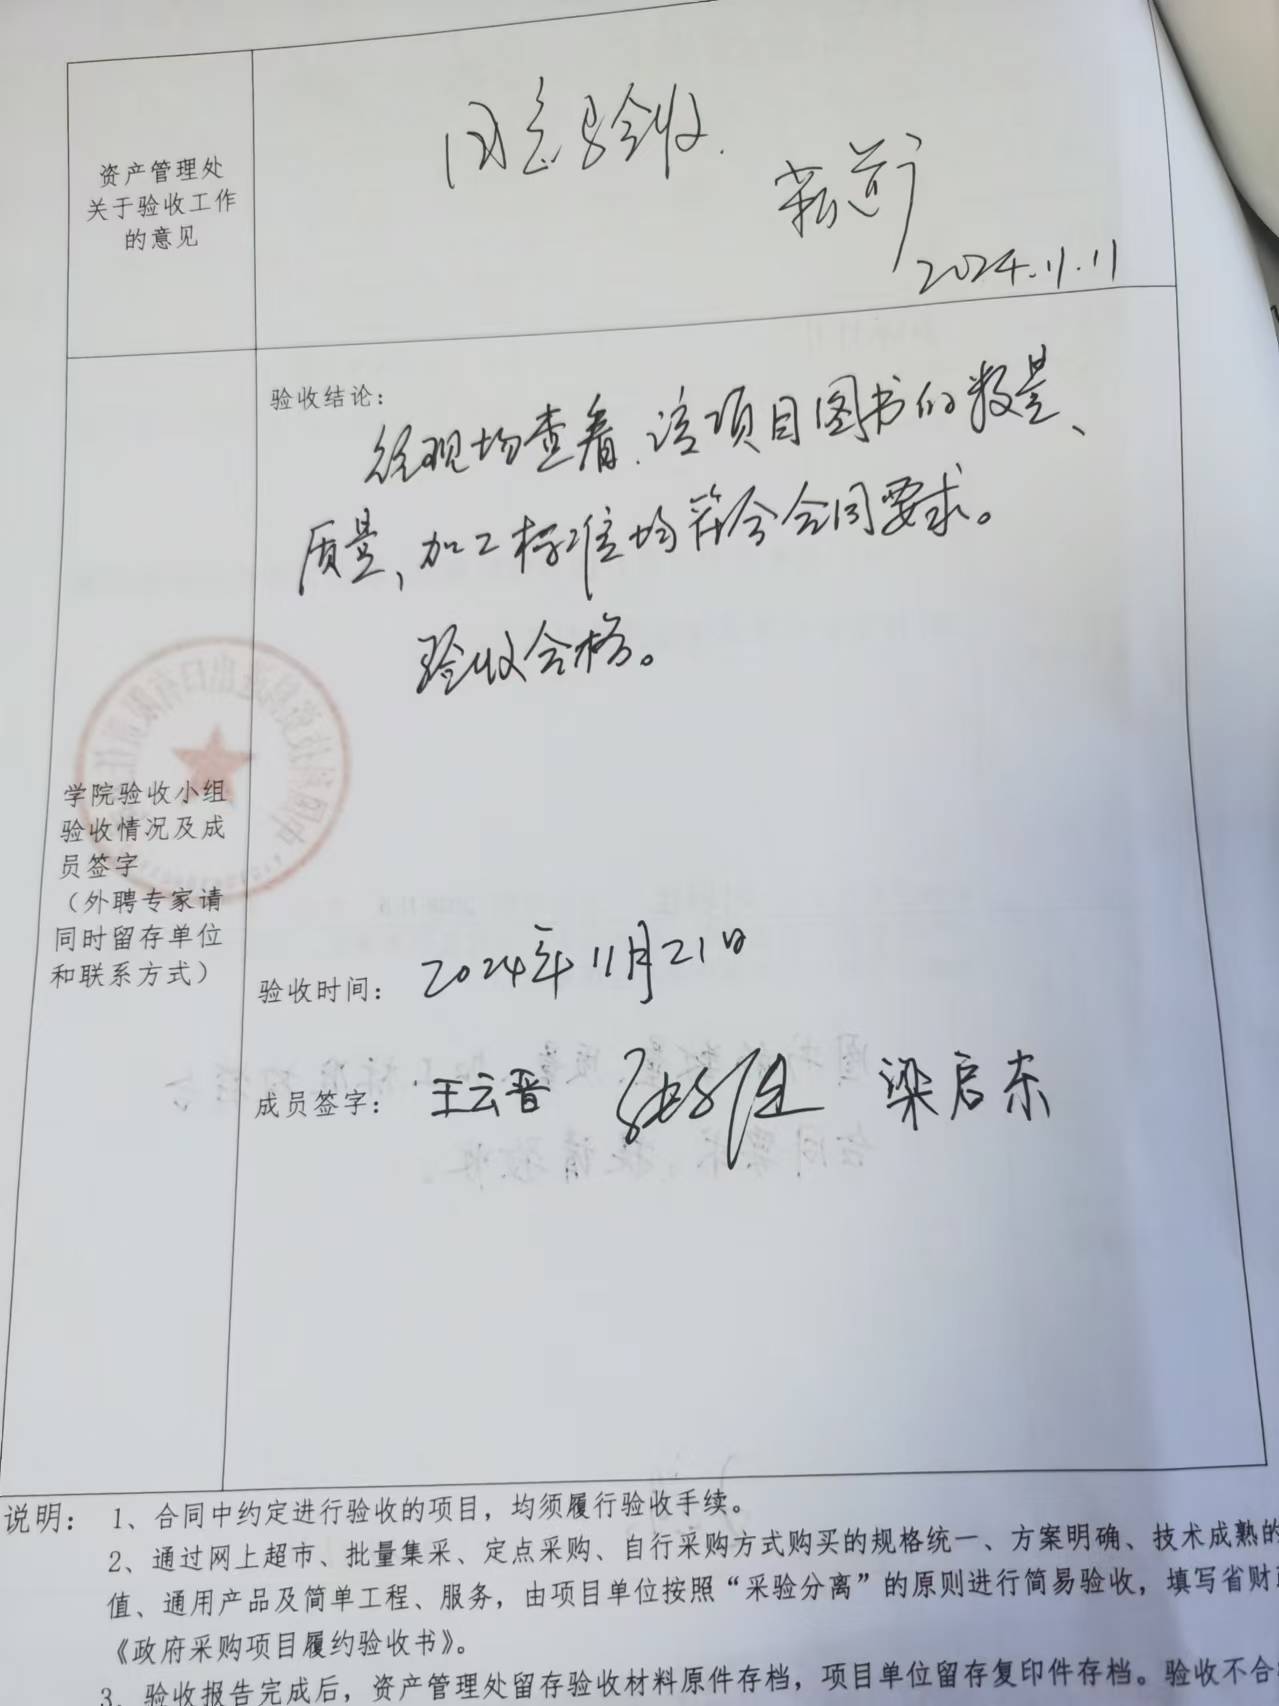 资产管理处
关于验收工作
的意见
同意验收.
2024.11.11
验收结论：
经现场查看.该项目图书的数量、
质量、加工标准均符合合同要求。
验收合格。
学院验收小组
验收情况及成
员签字
（外聘专家请
同时留存单位
和联系方式）
验收时间：2024年11月21日
成员签字：王云晋 梁启东
说明：1、合同中约定进行验收的项目，均须履行验收手续。
2、通过网上超市、批量集采、定点采购、自行采购方式购买的规格统一、方案明确、技术成熟的
值、通用产品及简单工程、服务，由项目单位按照“采验分离”的原则进行简易验收，填写省财
《政府采购项目履约验收书》。
3、验收报告完成后，资产管理处留存验收材料原件存档，项目单位留存复印件存档。验收不合